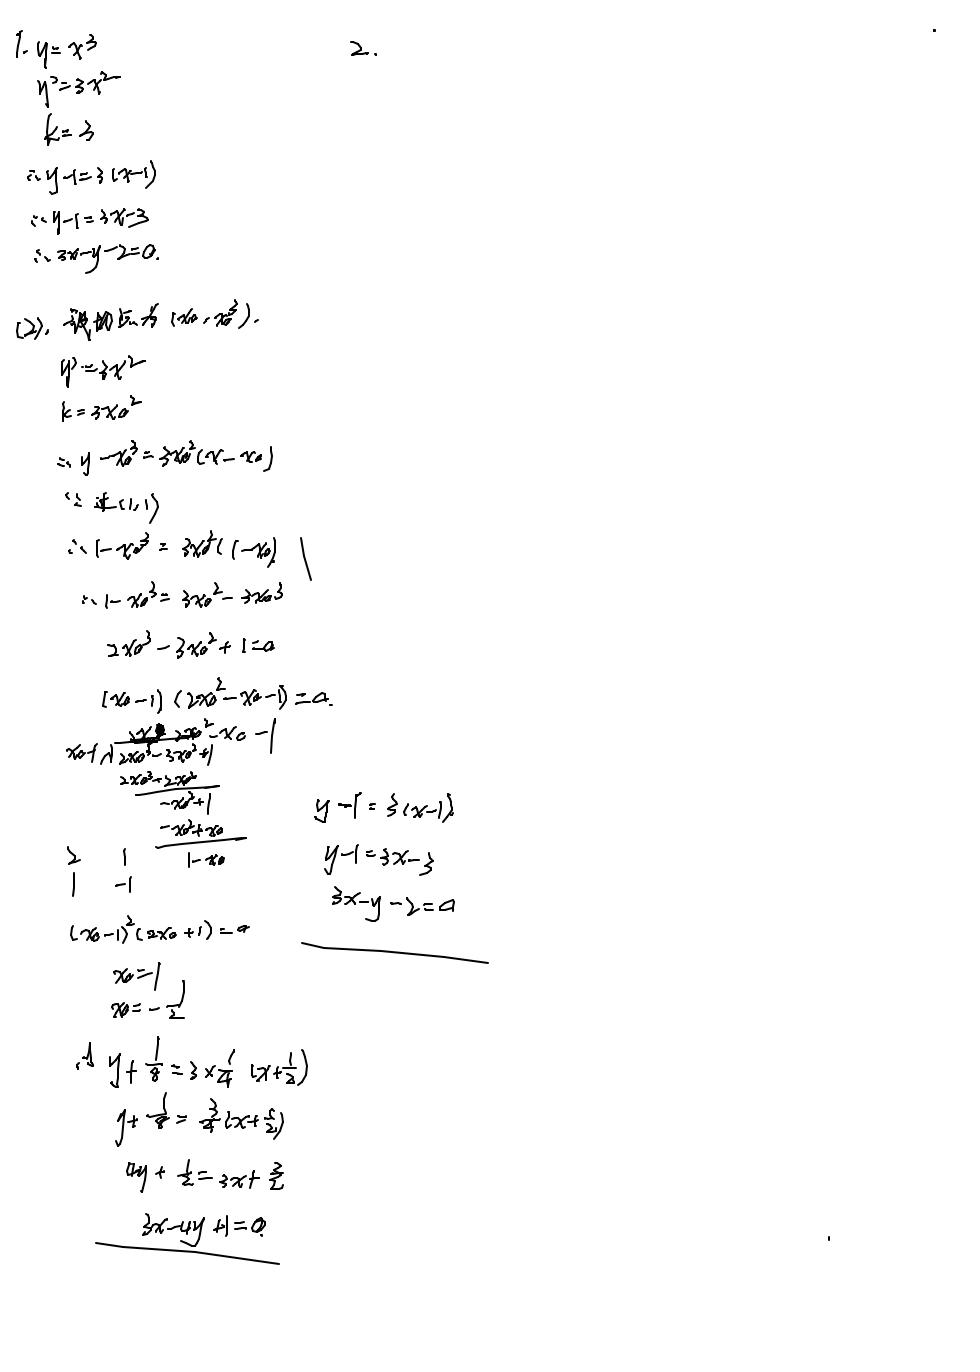 1. y=x³
y'=3x²
k=3
∴y-1=3(x-1)
∴y-1=3x-3
∴3x-y-2=0.
(2). 设切点为(x₀,x₀³).
y'=3x²
k=3x₀²
∴y-x₀³=3x₀²(x-x₀)
∵过(1,1)
∴1-x₀³=3x₀²(1-x₀)
∴1-x₀³=3x₀²-3x₀³
2x₀³-3x₀²+1=0
(x₀-1)(2x₀²-x₀-1)=0.
2x₀²-x₀-1
x₀-1 2x₀³-3x₀²+1
2x₀³-2x₀²
-x₀²+1
-x₀²+x₀
1-x₀
2 1
1 -1
(x₀-1)²(2x₀+1)=0
x₀=1
x₀=-1/2
∴ y+1/8=3×1/4(x+1/2)
y+1/8=3/4(x+1/2)
4y+1/2=3x+3/2
3x-4y+1=0.
y-1=3(x-1).
y-1=3x-3
3x-y-2=0
2.